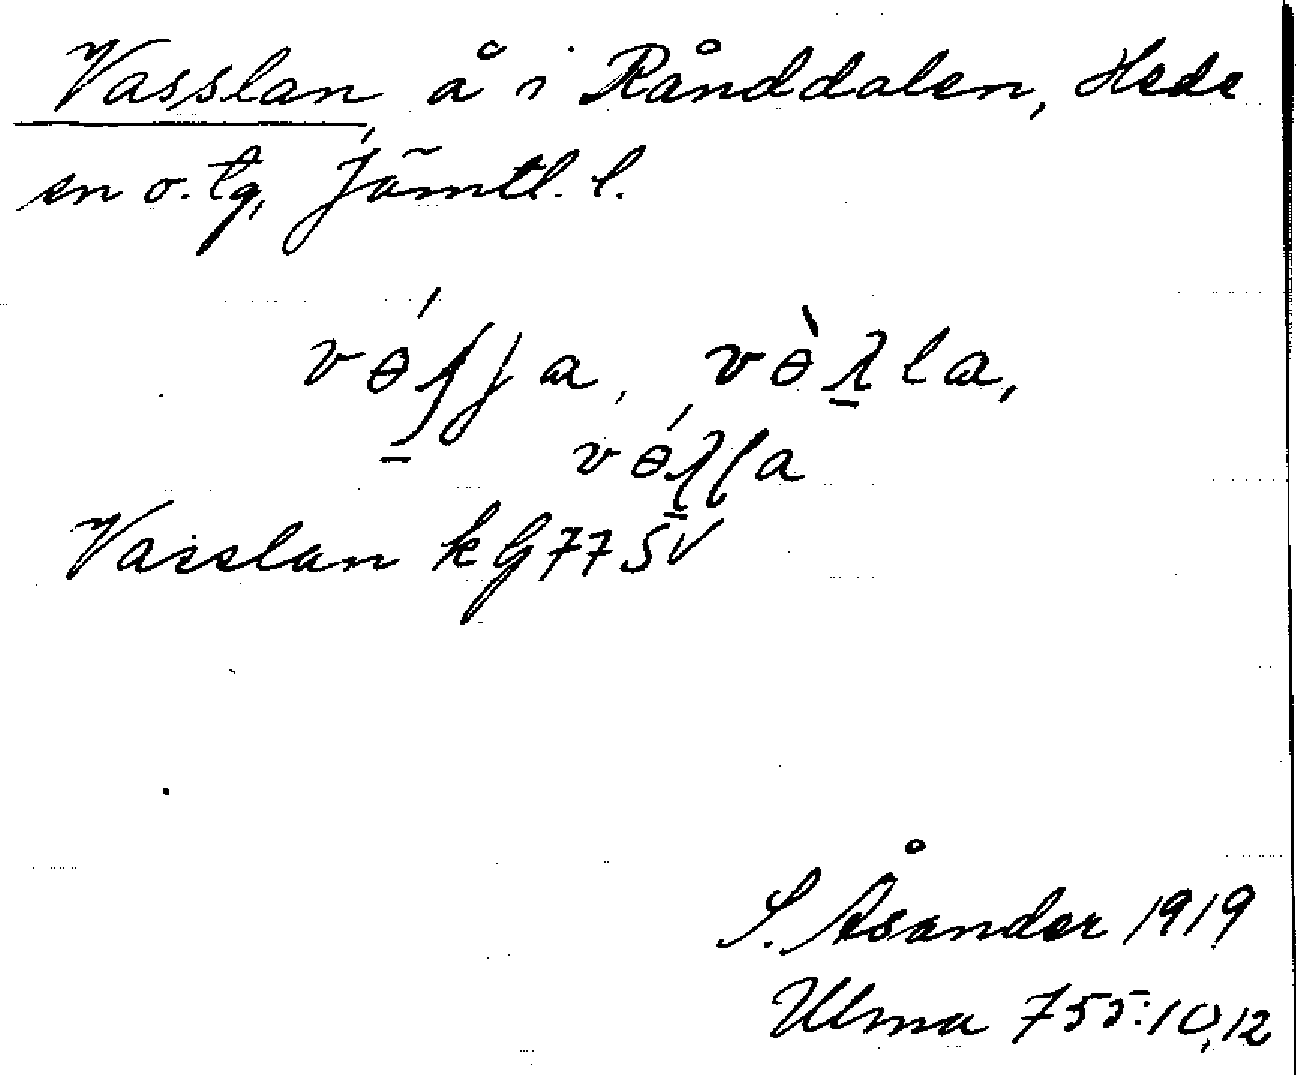 Vasslan, å i Rånddalen, Hede
sn o. tg, Jämtl. l.
Vasslan kG77SV
S. Åsander 1919
Ulma 755:10,12